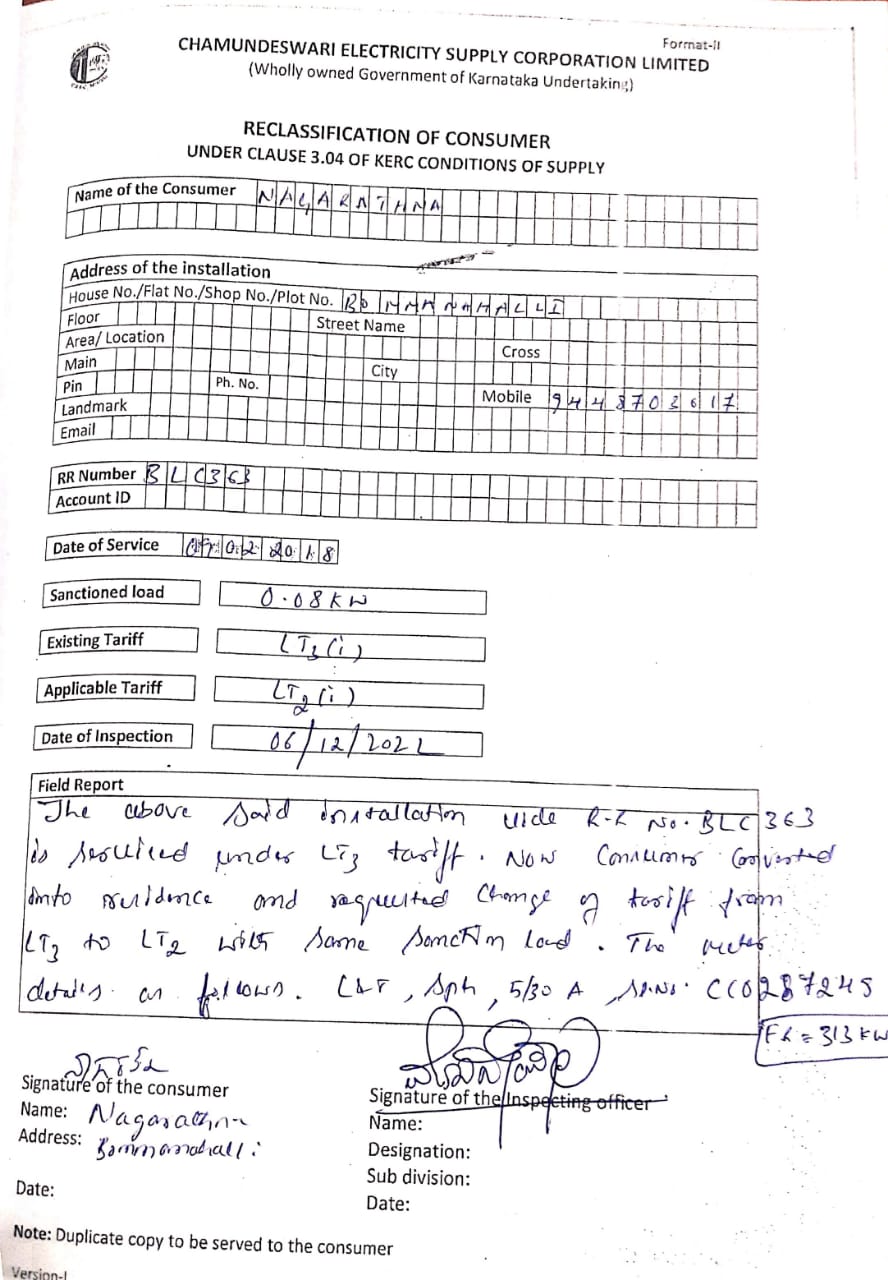 Format-II
CHAMUNDESWARI ELECTRICITY SUPPLY CORPORATION LIMITED
(Wholly owned Government of Karnataka Undertaking)
RECLASSIFICATION OF CONSUMER
UNDER CLAUSE 3.04 OF KERC CONDITIONS OF SUPPLY
Name of the Consumer NAGARATHNA
Address of the installation
House No./Flat No./Shop No./Plot No. BOMMANAHALLI
Floor Street Name
Area/ Location Cross
Main City
Pin Ph. No. Mobile 9448703617
Landmark
Email
RR Number BLC363
Account ID
Date of Service 02 2018
Sanctioned load 0.08KW
Existing Tariff LT3(i)
Applicable Tariff LT2(i)
Date of Inspection 06/12/2022
Field Report
The above said installation vide R.R No. BLC 363
is serviced under LT3 tariff. Now Consumer Converted
into residence and requested Change of tariff from
LT3 to LT2 with same sanction load. The meter
details as follows. L&T, Sph, 5/30 A, Sl.No. CC0287245
FR = 313 KW
Signature of the consumer
Signature of the Inspecting officer
Name: Nagarathna
Name:
Address: Bommanahalli
Designation:
Sub division:
Date:
Date:
Note: Duplicate copy to be served to the consumer
Version-I